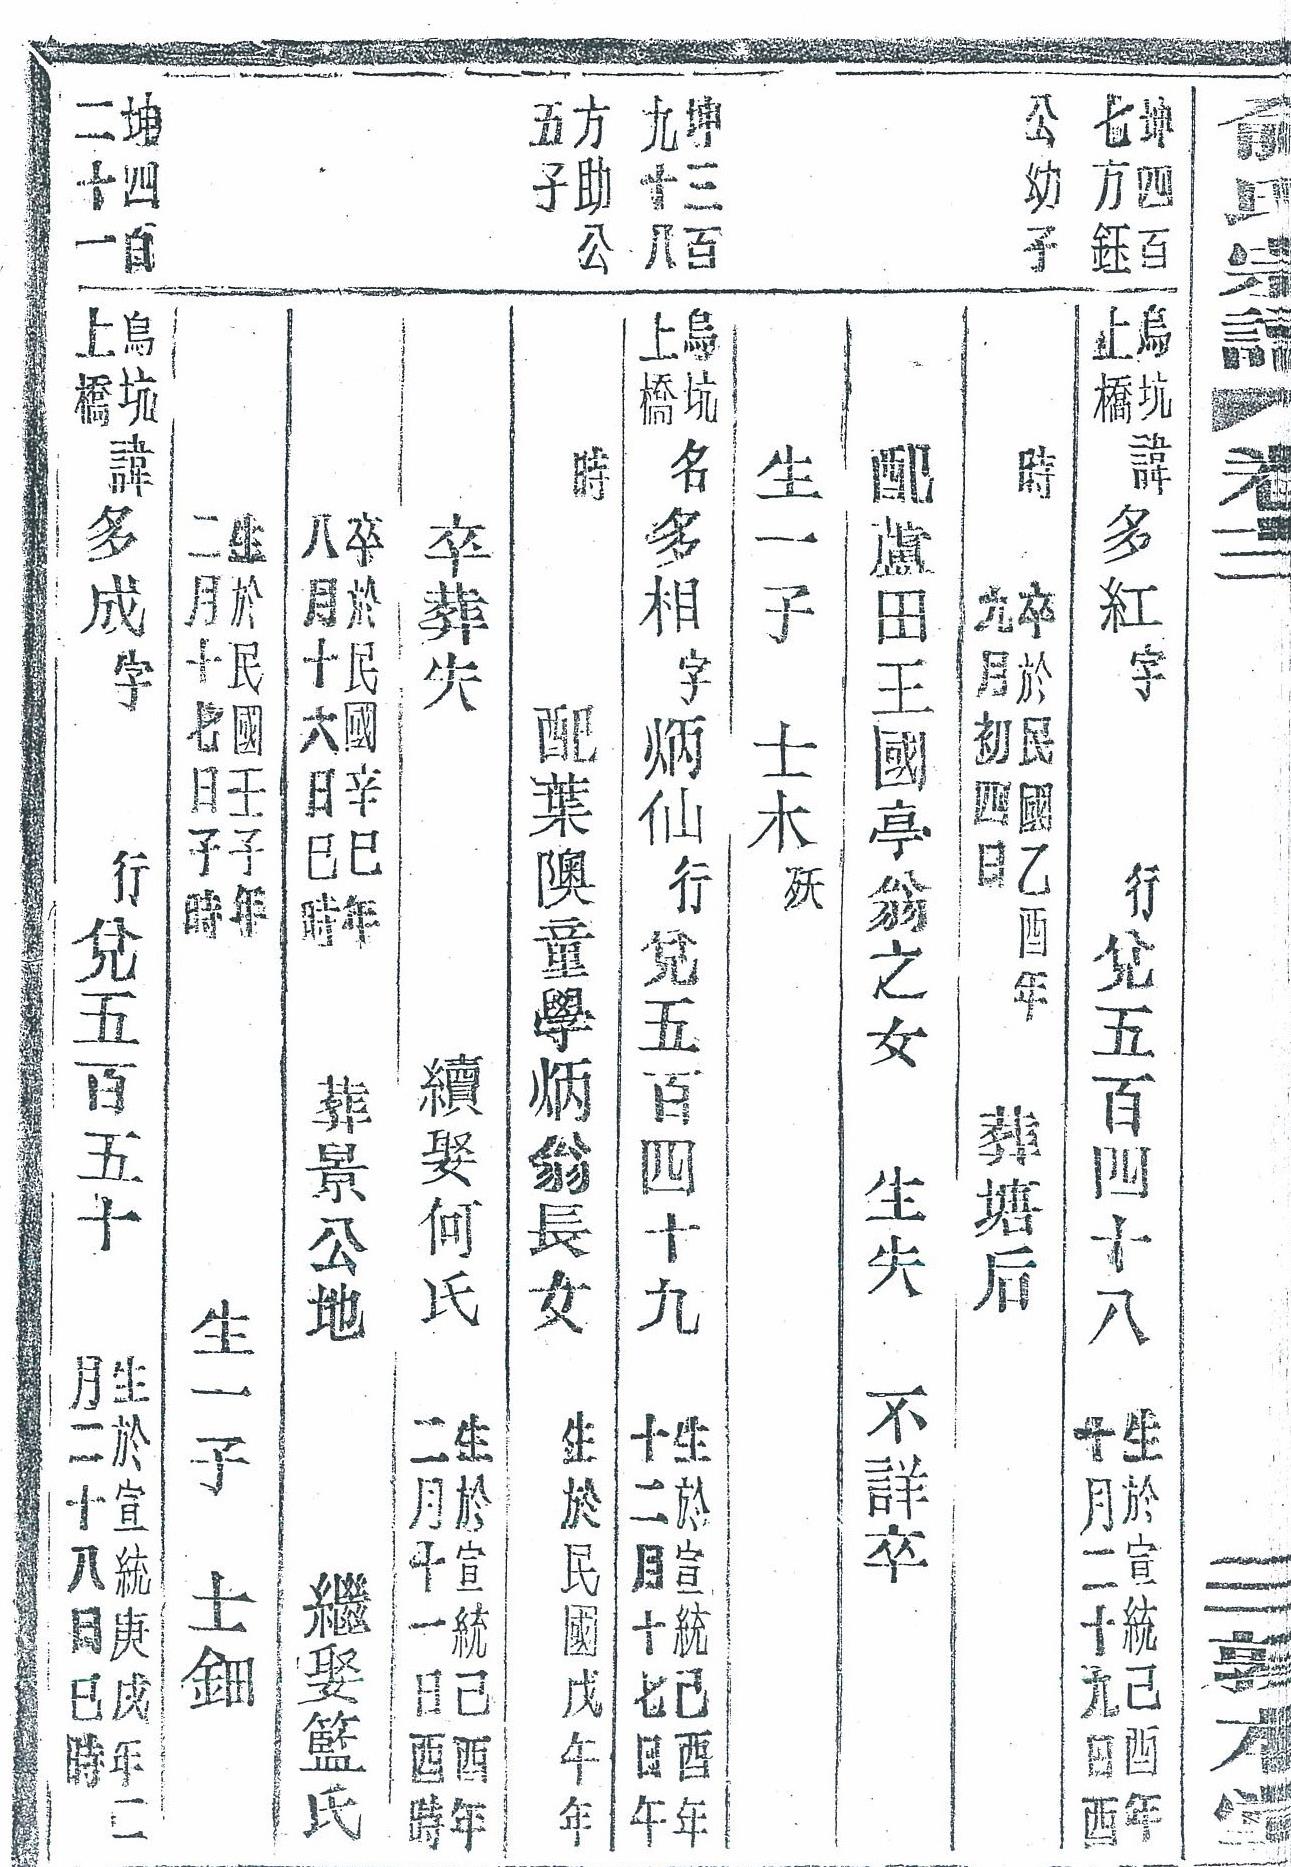 俞氏宗譜 卷十二 敦本堂
坤四百
七方鈺
公幼子
烏坑
上橋
諱多紅字 行兌五百四十八
生於宣統己酉年
十月二十九日酉
時
卒於民國乙酉年
九月初四日
葬塘后
配蘆田王國亭翁之女 生失 不詳卒
生一子 士木 殀
坤三百
九十八
方助公
五子
烏坑
上橋
名多相字炳仙行兌五百四十九
生於宣統己酉年
十二月十七日午
時
配葉隩童學炳翁長女 生於民國戊午年
卒葬失 續娶何氏
生於宣統己酉年
二月十一日酉時
卒於民國辛巳年
八月十六日巳時
葬景公地 繼娶籃氏
生於民國壬子年
二月十七日子時
生一子 士鈿
坤四百
二十一
烏坑
上橋
諱多成字 行兌五百五十
生於宣統庚戌年二
月二十八日巳時